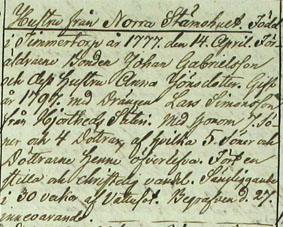 Hustru från Norra Stensbuet. Född
i Timmertorp år 1777. den 14. April. För-
äldrarne Bonden Johan Gabrielsson
och dess Hustru Anna Jönsdotter. Gift
år 1797. med Drängen Lars Simonsson
från Med honom 7. Sö-
ner och 4 Döttrar, af hvilka 5. Söner och
Döttrarne henne överlefva. Fört en
stilla och christelig vandel. Sängliggande
i 30 vekor af Vattusot. Begrafven d. 27.